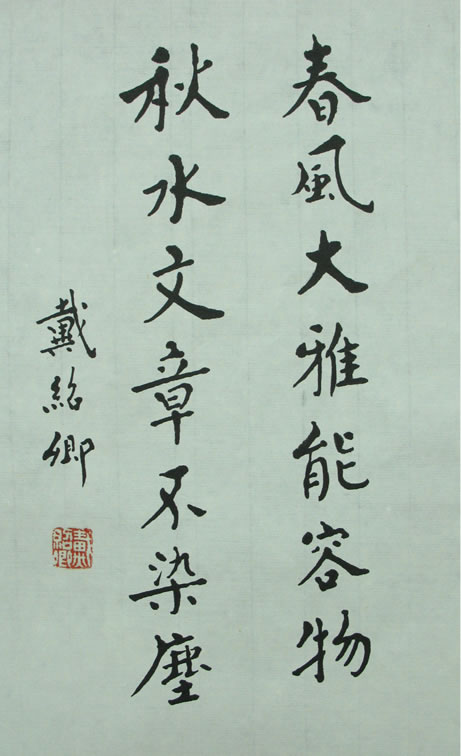 春風大雅能容物
秋水文章不染塵
戴紹卿